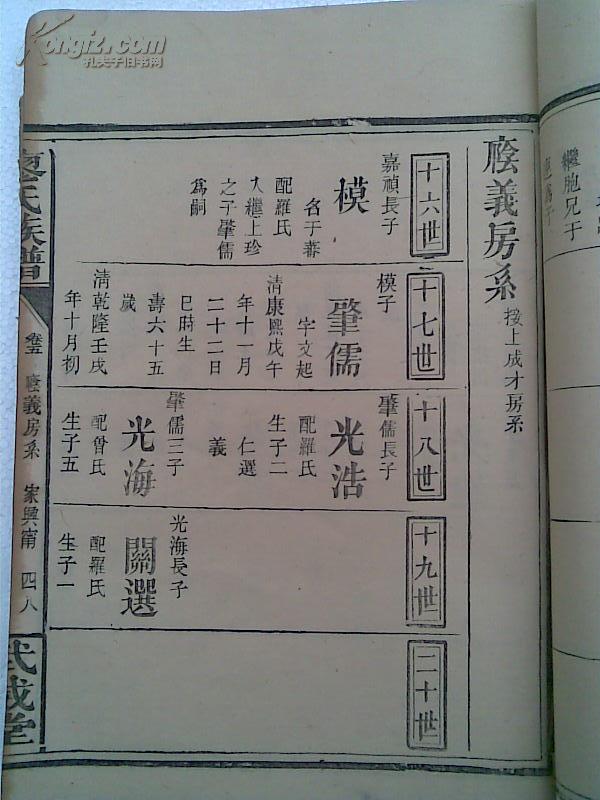 Kongfz.com
孔夫子旧书网
繼胞兄于
廕義房系
接上成才房系
十六世
嘉禎長子
模
名于蕃
配羅氏
入繼上珍
之子肇儒
爲嗣
十七世
模子
肇儒
字文起
清康熙戊午
年十一月
二十二日
巳時生
壽六十五
歲
清乾隆壬戌
年十月初
十八世
肇儒長子
光浩
配羅氏
生子二
仁選
義
肇儒三子
光海
配曾氏
生子五
十九世
光海長子
關選
配羅氏
生子一
二十世
廖氏族譜
卷五
廕義房系
家興甯
四八
武威堂